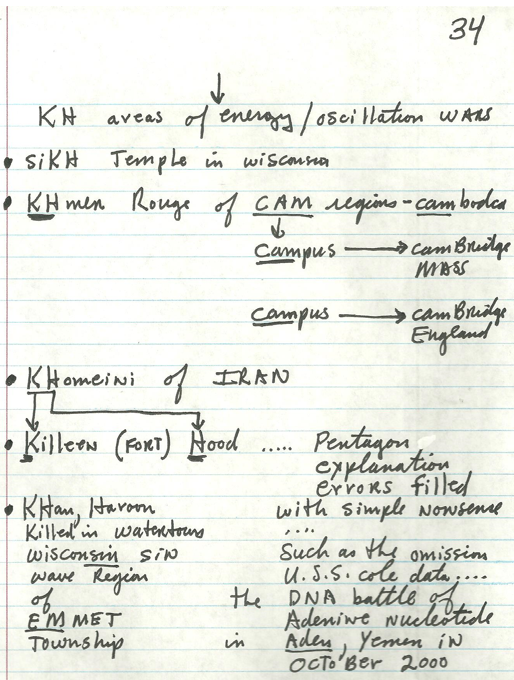 34
KH areas of energy/oscillation WARS
• siKH Temple in wisconsin
• KHmen Rouge of CAM regions - cambodia
campus → camBridge
MASS
campus → camBridge
England
• KHomeini of IRAN
• Killeen (FORT) Hood ..... Pentagon
explanation
errors filled
• KHan, Haroon with simple nonsense
Killed in watertown ....
wisconsin sin Such as the omission
wave Region U.S.S. cole data....
of the DNA battle of
EMMET Adenine nucleotide
Township in Aden, Yemen in
OCTOBER 2000